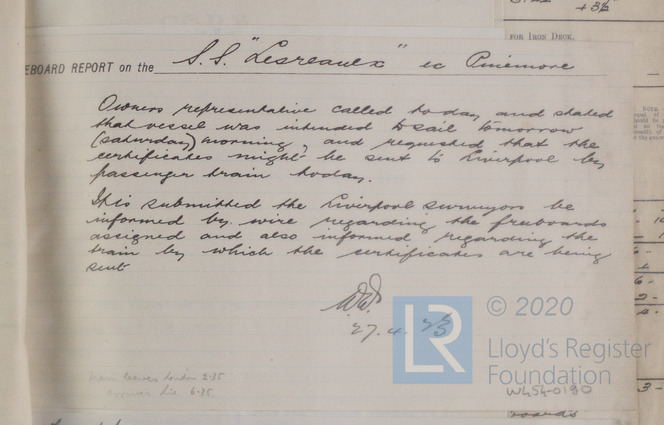 +3½
FOR IRON DECK.
EBOARD REPORT on the S.S. "Lesreaulx" ex Pinemore
Owners representative called today and stated
that vessel was intended to sail tomorrow
(saturday) morning, and requested that the
certificates might be sent to Liverpool by
passenger train today.
It is submitted the Liverpool surveyors be
informed by wire regarding the freeboards
assigned and also informed regarding the
train by which the certificates are being
sent
27.4.23
LR © 2020
Lloyd's Register
Foundation
W454-0190
Train leaves London 2.35
arrives Liv. 6.35